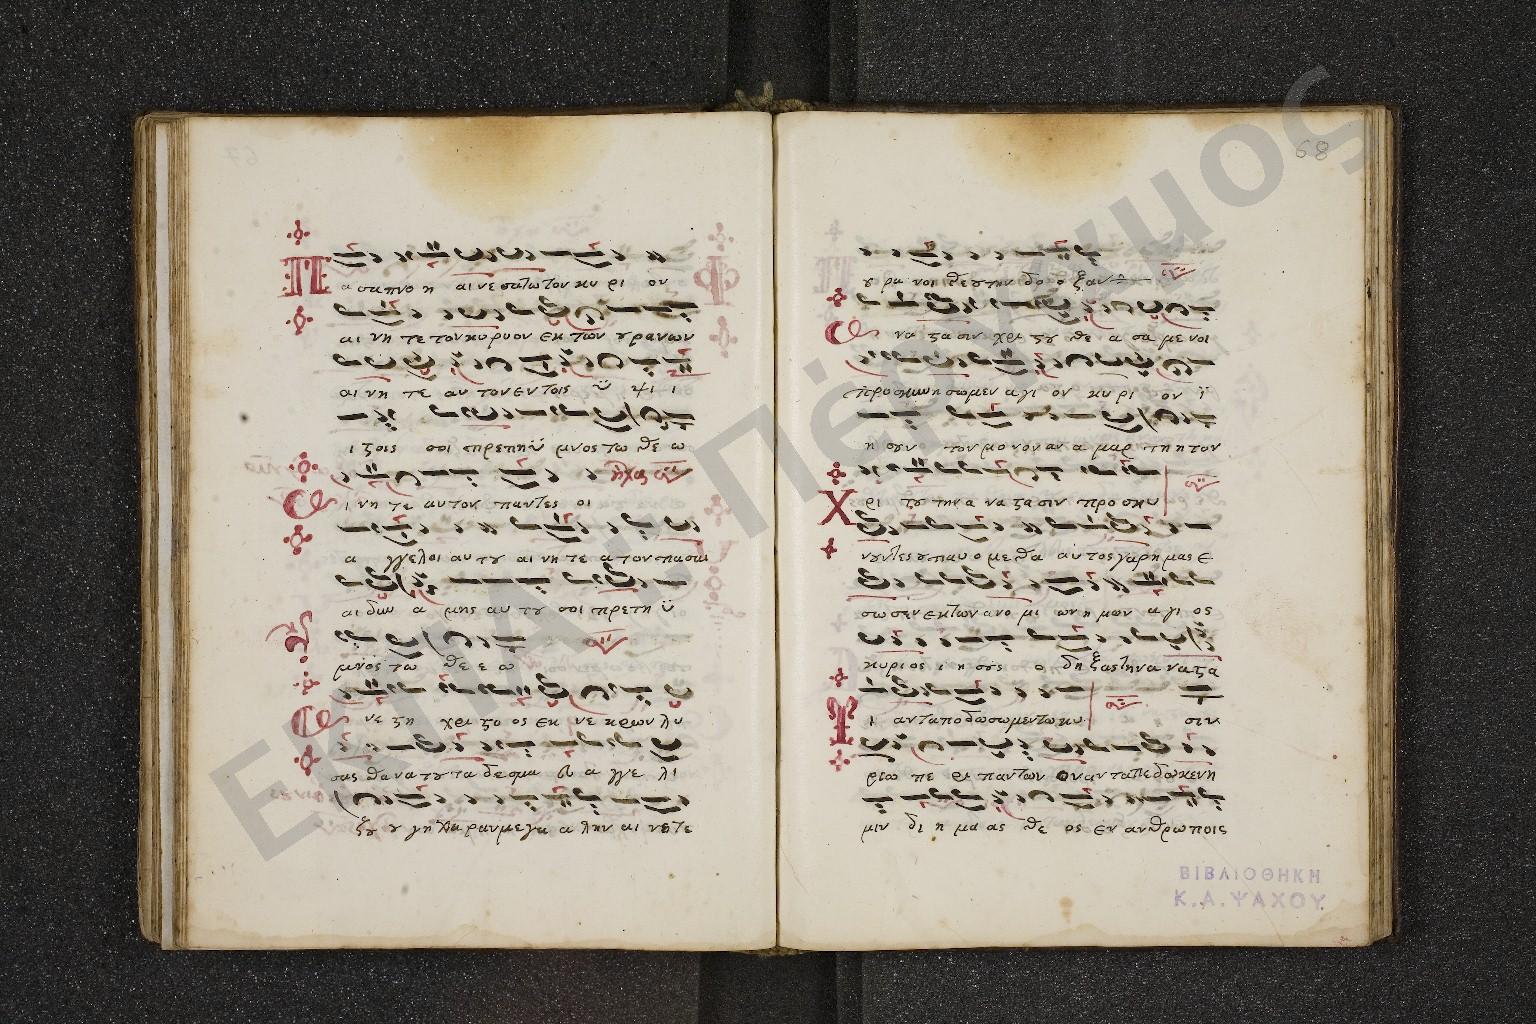 68
Πασα πνο η αι νε σα τω τον κυ ρι ον
αι νη τε τον κυριον εκ των ουρανων
αι νη τε αυ τον εν τοις ϋ ψι ι
ι ϛοις σοι πρεπη ϋ μνος τω θε ω
ηχος
Αι νη τε αυτον παντες οι
α γγελοι αυ του αι νη τε α τον πασαι
αι δυν α μης αυ του σοι πρεπη ϋ
μνος τω θε ε ω
Ανε ϛη χρι ϛο ος εκ νε κρων λυ
σας θανατου τα δεσμα ευ α γγε λι
ζου ου γη χαραν μεγα α λην αι νειτε
ου ρα νοι θεου την δο ο ξαν
Ανα ϛασιν χρι ϛου θε α σα με νοι
προσκυνη σωμεν αγι ον κυ ρι ον ϊ
η σουν τον μο νον αν α μαρ τη η τον
Χρι ϛου την α να ϛα σιν προ σκυ
νουντες ου παυ ο με θα αυτος γαρ η μας ε
σω σεν εκ των ανο μι ων η μων α γι ος
κυρι ος ι η σους ο δη ξας την α να ϛα
σιν
Τι ανταποδωσωμεν τω κυ
ριω πε ρι παντων ων ανταπεδωκεν η
μιν δι η μα ας θε ος εν ανθρωποις
ΒΙΒΛΙΟΘΗΚΗ
Κ.Α.ΨΑΧΟΥ
ΕΚΠΑ: Πέργαμος